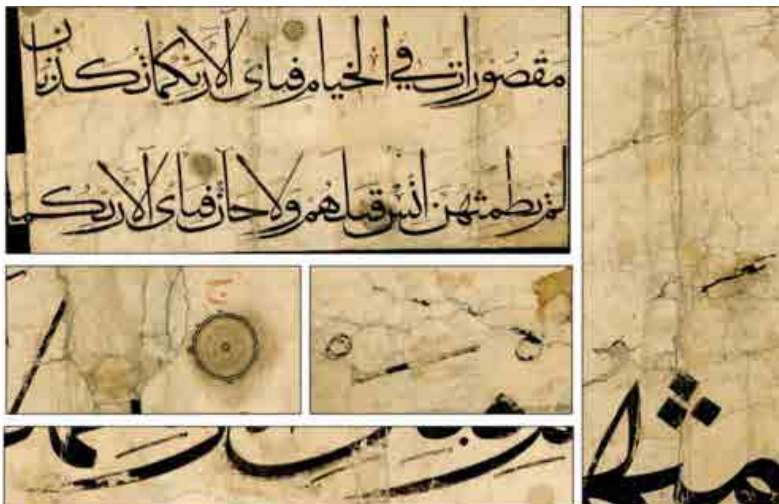 مقصورات في الخيام فباى آلاء ربكما تكذبان
لم يطمثهن انس قبلهم ولا جان فباى آلاء ربكما
ج